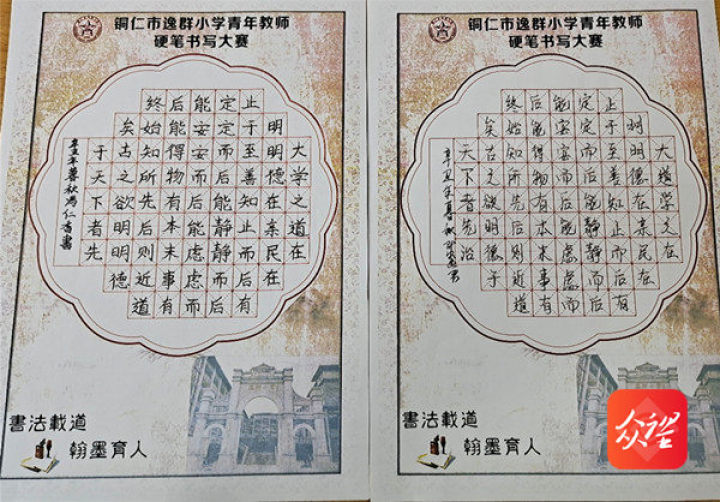 铜仁市逸群小学青年教师
硬笔书写大赛
大学之道在
明明德在亲民在
止于至善知止而后有
定定而后能静静而后
能安安而后能虑虑而
后能得物有本末事有
终始知所先后则近道
矣古之欲明明德
于天下者先
辛丑年暮秋冯仁香書
書法載道
翰墨育人
铜仁市逸群小学青年教师
硬笔书写大赛
大道学之在
明明德在亲民在
止于至善知止而后有
定定而后能静静而后
能安安而后能虑虑而
后能得物有本末事有
终始知所先后则近道
矣古之欲明德于
天下者先治
辛丑年暮秋
書法載道
翰墨育人
众望